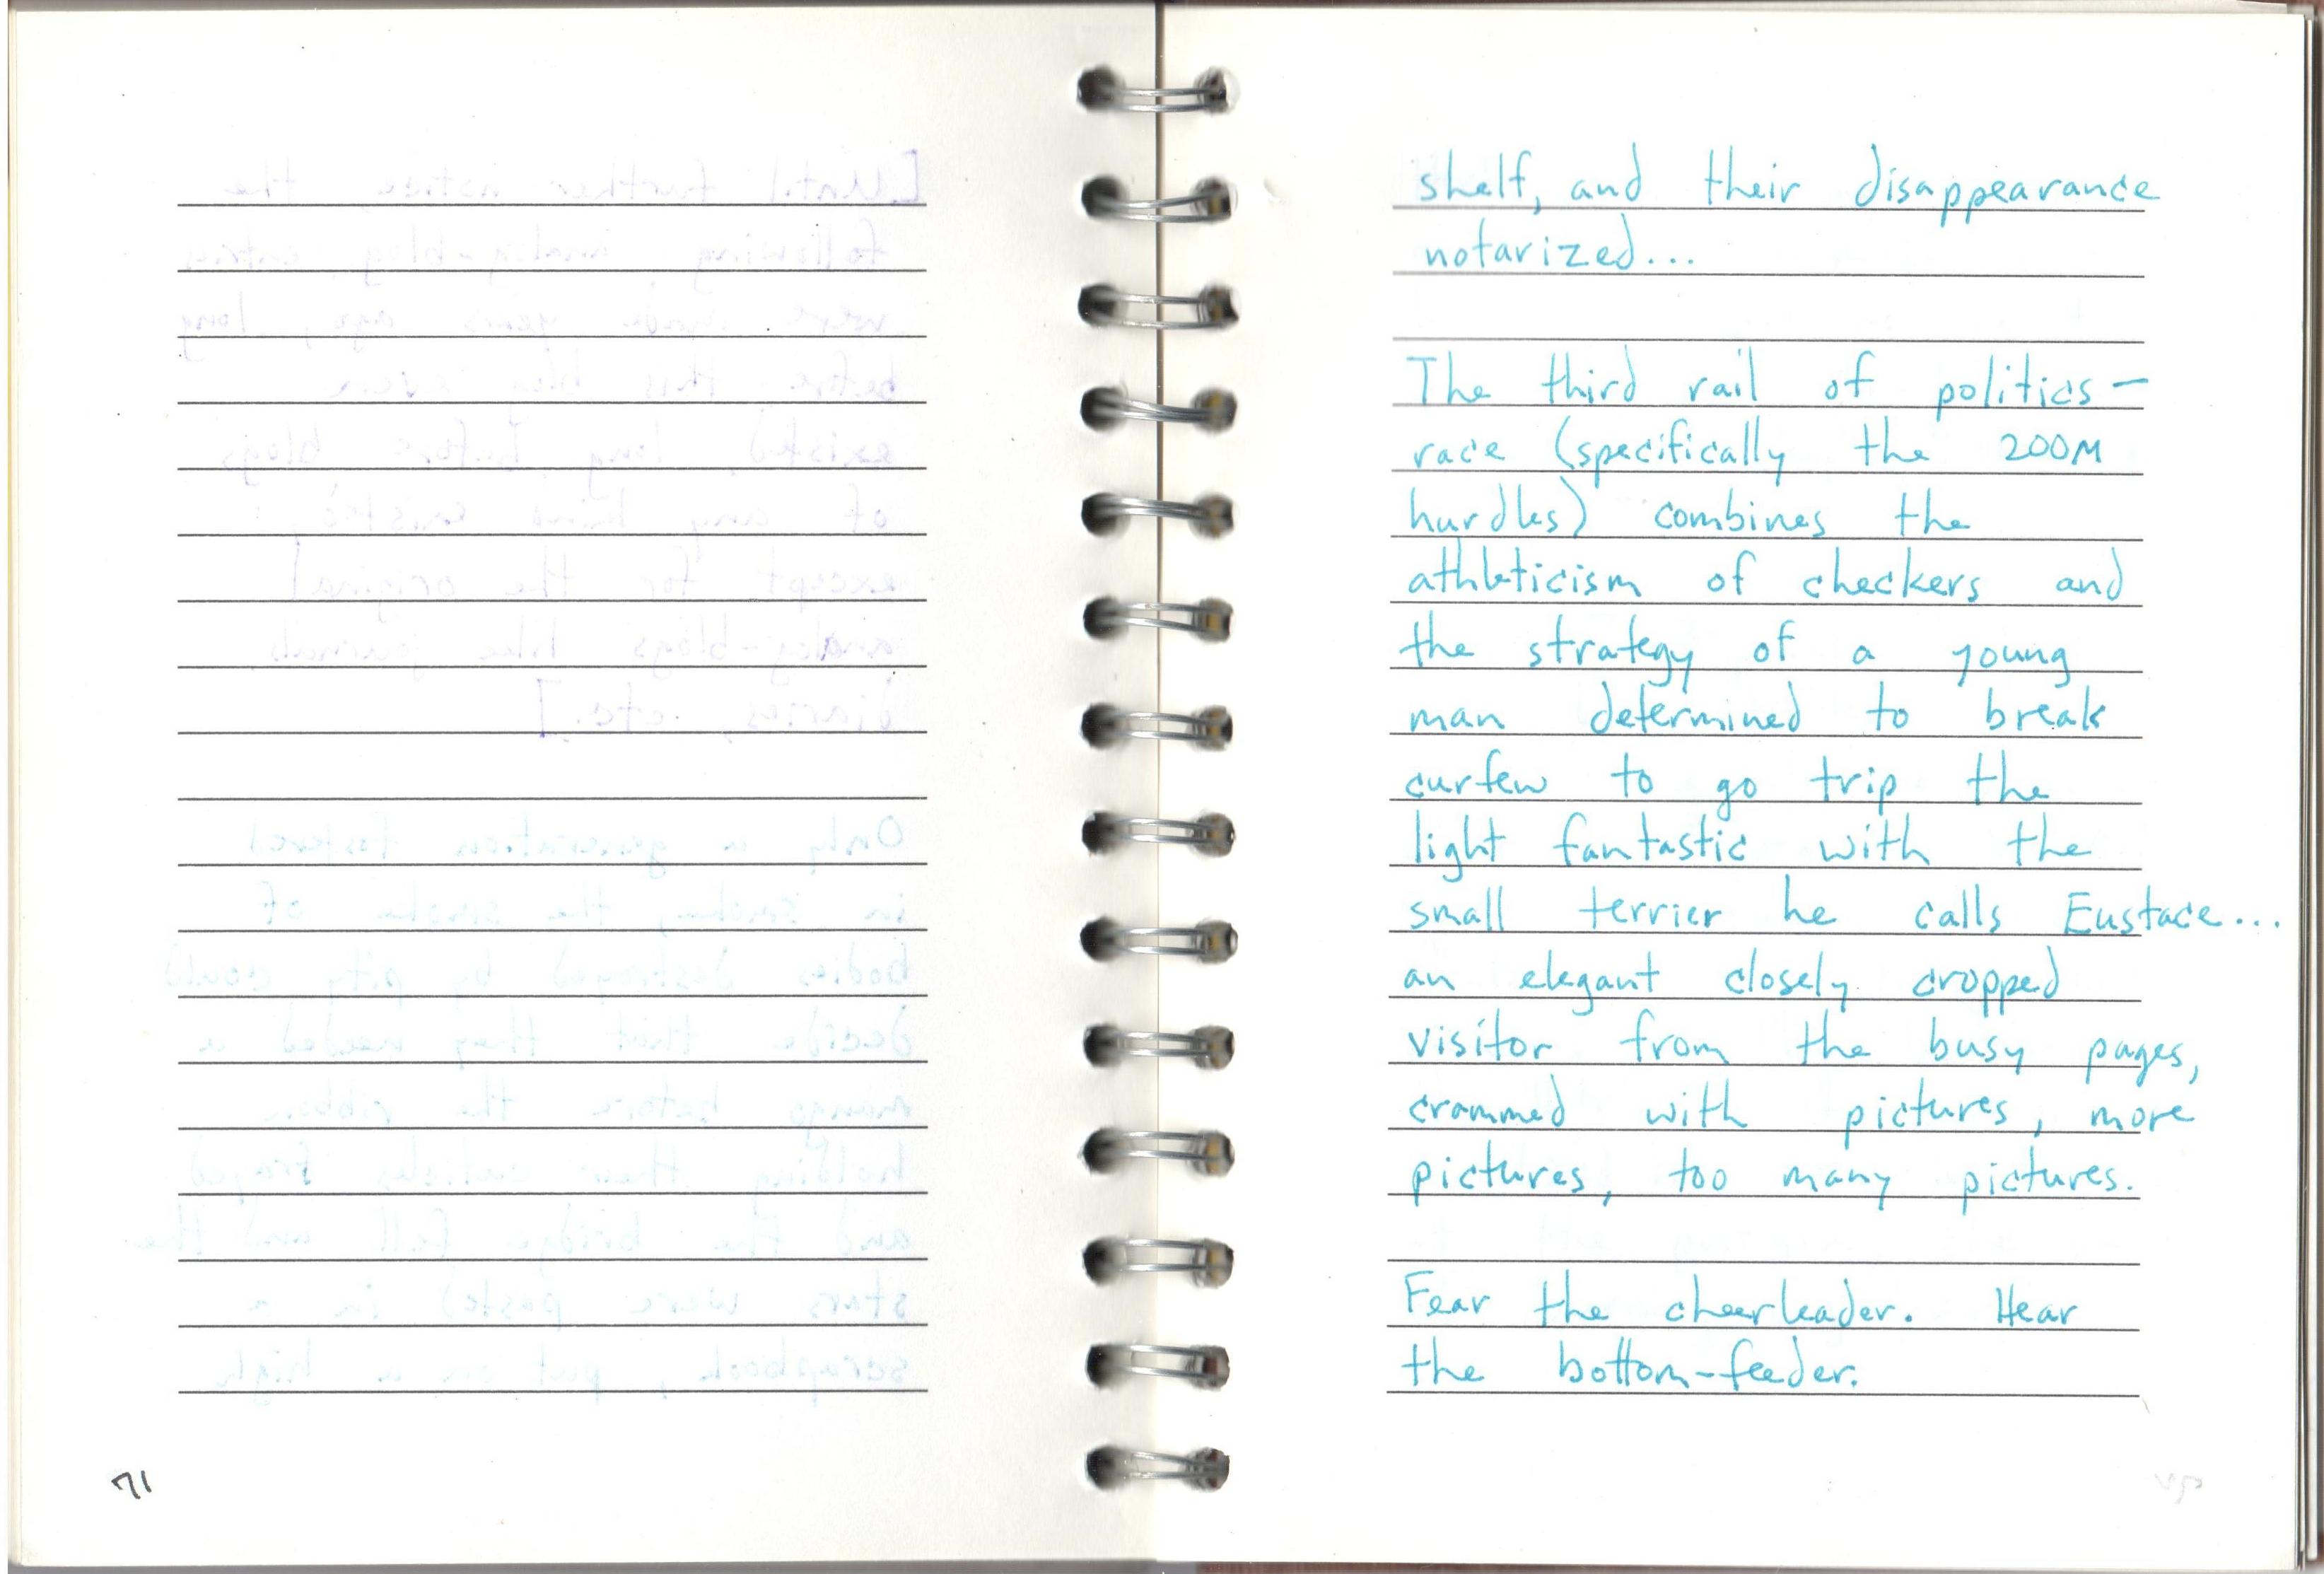 71
shelf, and their disappearance
notarized...
The third rail of politics —
race (specifically the 200M
hurdles) combines the
athleticism of checkers and
the strategy of a young
man determined to break
curfew to go trip the
light fantastic with the
small terrier he calls Eustace...
an elegant closely cropped
visitor from the busy pages,
crammed with pictures, more
pictures, too many pictures.
Fear the cheerleader. Hear
the bottom-feeder.